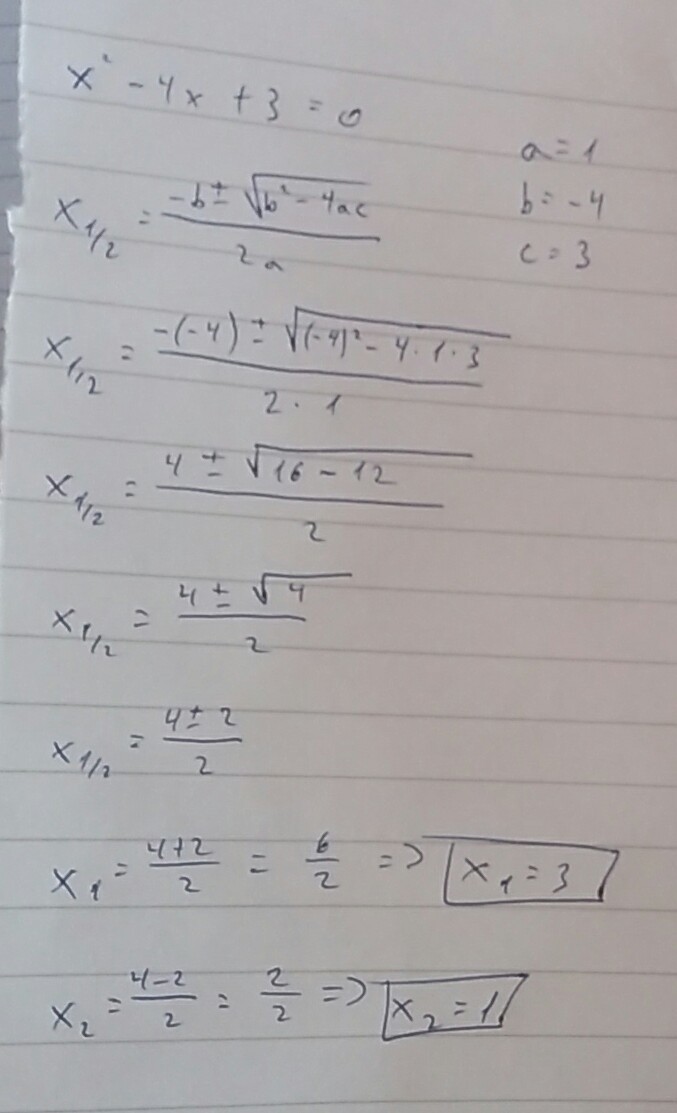 x² - 4x + 3 = 0
a = 1
b = -4
c = 3
x₁/₂ = (-b ± √(b² - 4ac)) / 2a
x₁/₂ = (-(-4) ± √((-4)² - 4 · 1 · 3)) / (2 · 1)
x₁/₂ = (4 ± √(16 - 12)) / 2
x₁/₂ = (4 ± √4) / 2
x₁/₂ = (4 ± 2) / 2
x₁ = (4+2) / 2 = 6/2 => x₁ = 3
x₂ = (4-2) / 2 = 2/2 => x₂ = 1